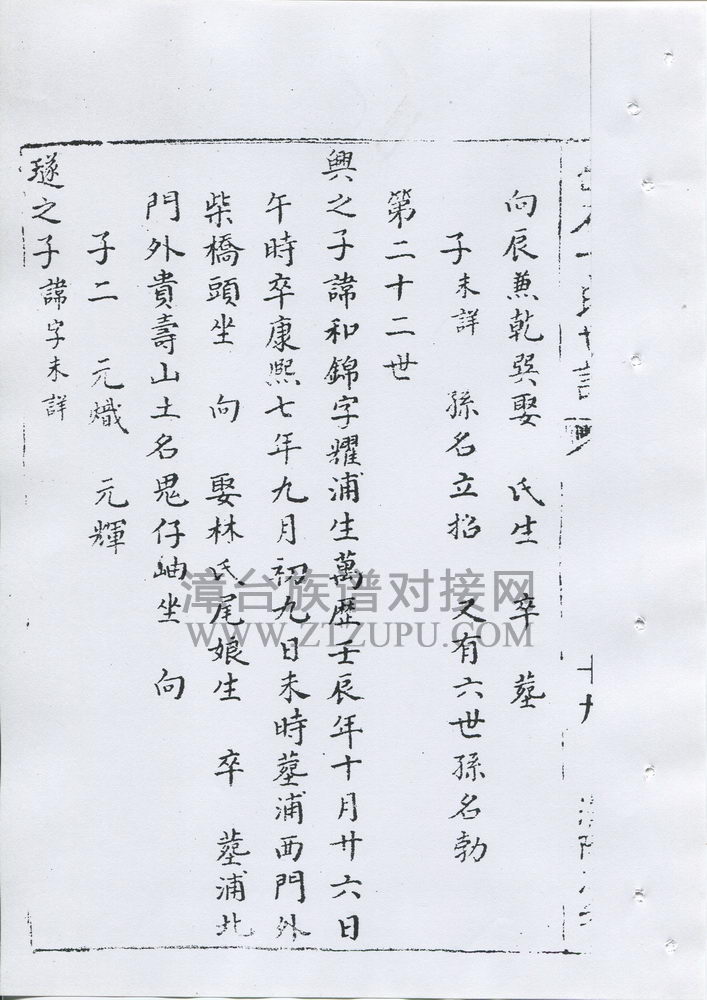 向辰兼乾巽娶　氏生　卒　墓
子未詳　孫名立招　又有六世孫名勃
第二十二世
興之子諱和錦字耀浦生萬歷壬辰年十月廿六日
午時卒康熙七年九月初九日未時墓浦西門外
柴橋頭坐　向　娶林氏尾娘生　卒　墓浦北
門外貴壽山土名鬼仔岫坐　向
子二　元熾　元輝
璲之子諱字未詳
漳台族谱对接网
WWW.ZTZUPU.COM